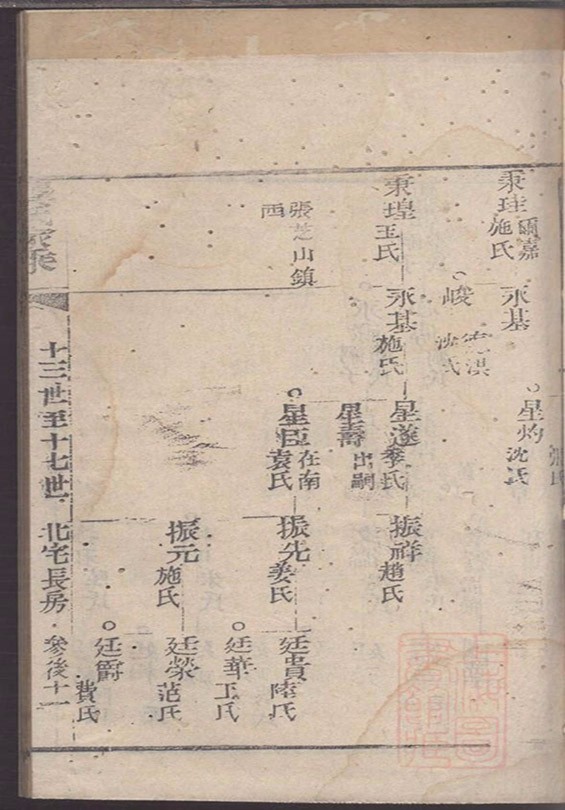 秉珪 爾嘉
施氏
永基
峻 德淇
沈氏
星灼
沈氏
秉堭
王氏
永基
施氏
星遂
季氏
星壽
出嗣
星臣 在南
袁氏
振祥
趙氏
振先
姜氏
振元
施氏
廷貴
陸氏
廷華
王氏
廷榮
范氏
廷爵
費氏
張芝山鎮
西
十三世至十七世 北宅長房 參後十一